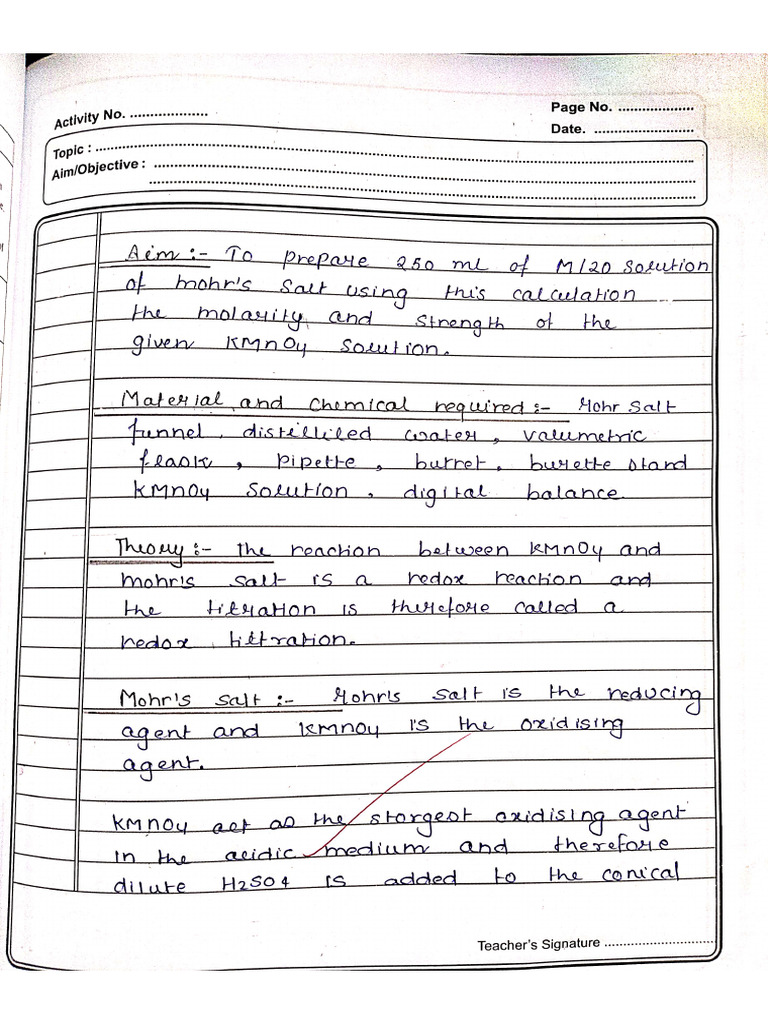 Activity No. ...................
Page No. ...................
Date. .........................
Topic : ...................................................................
Aim/Objective : ...................................................................
Aim :- To prepare 250 ml of M/20 solution
of mohr's salt using this calculation
the molarity and strength of the
given KMnO4 solution.
Material and chemical required :- Mohr salt
funnel, distelliled water, valumetric
flask, pipette, burret, burette stand
KMnO4 solution, digital balance
Theory :- the reaction between KMnO4 and
mohr's salt is a redox reaction and
the titration is therefore called a
redox titration.
Mohr's salt :- Mohr's salt is the reducing
agent and KMnO4 is the oxidising
agent.
KMnO4 act as the storgest oxidising agent
in the acidic medium and therefore
dilute H2SO4 is added to the conical
Teacher's Signature ...........................